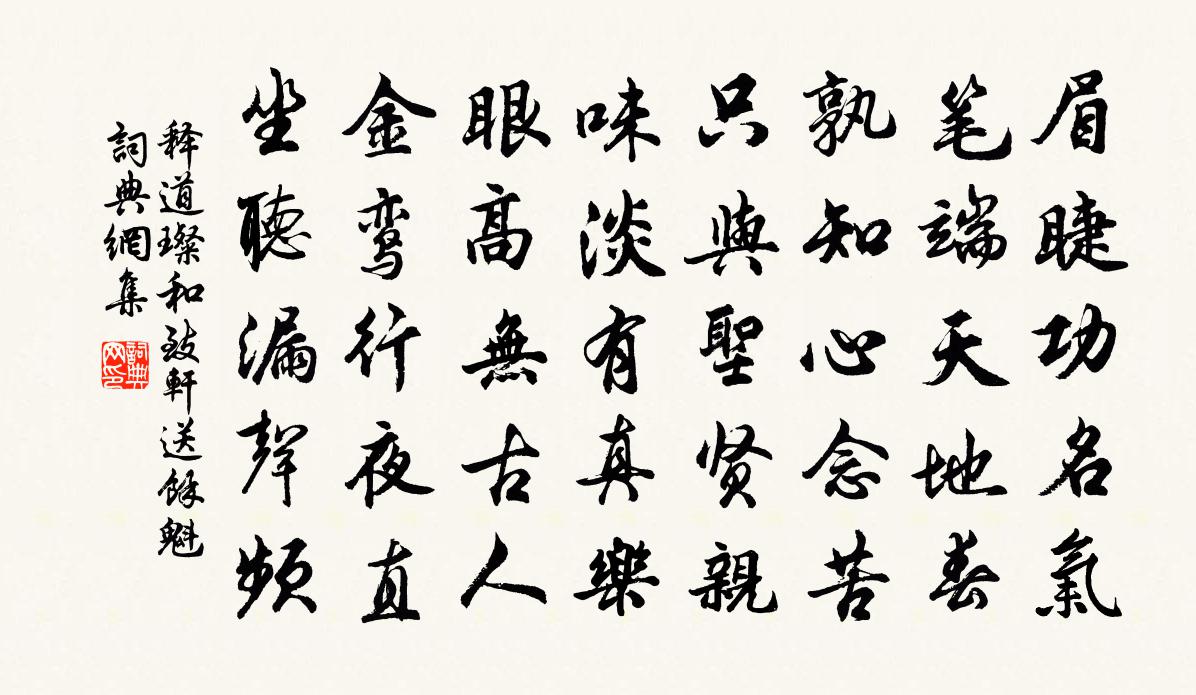 眉睫功名氣
笔端天地春
孰知心念苦
只與聖贤親
味淡有真樂
眼高無古人
金鸾行夜直
坐聽漏聲頻
释道璨和致軒送餘魁
詞典網集
詞典网印